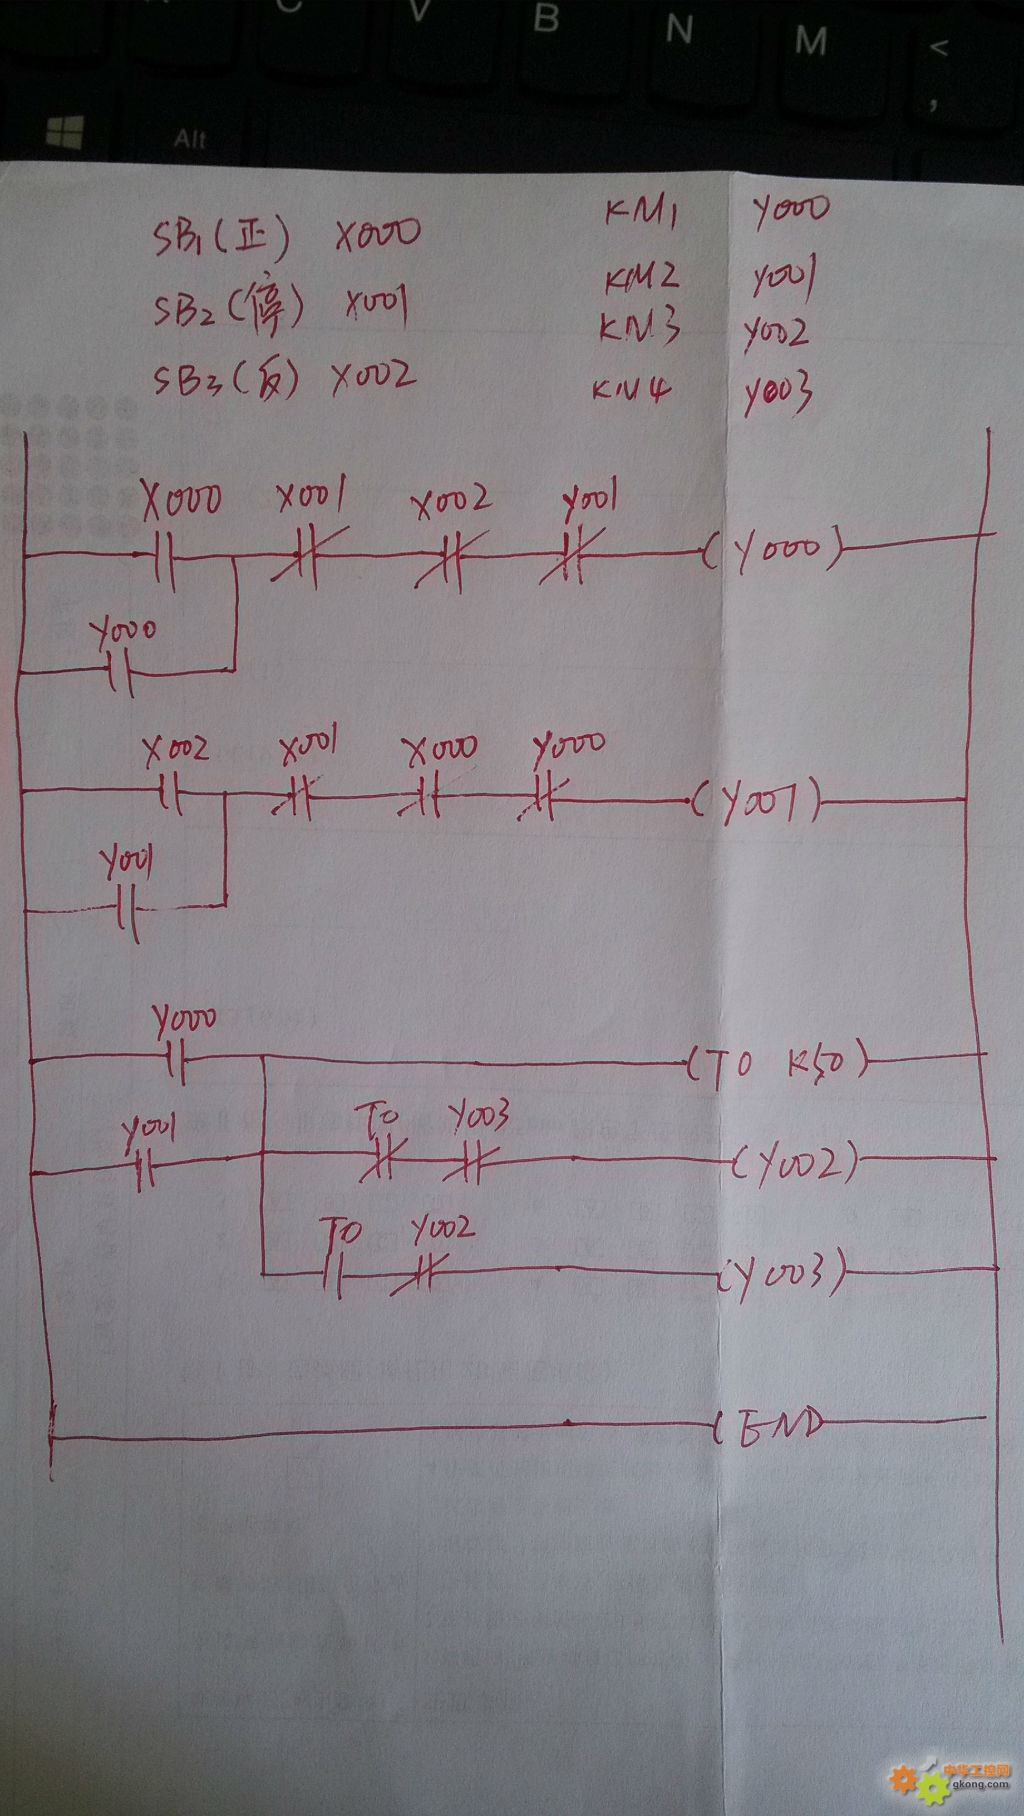 C V B N M <
,
Alt
SB1(正) X000 KM1 Y000
SB2(停) X001 KM2 Y001
SB3(反) X002 KM3 Y002
KM4 Y003
X000 X001 X002 Y001
(Y000)
Y000
X002 X001 X000 Y000
(Y001)
Y001
Y000
(T0 K50)
Y001 T0 Y003
(Y002)
T0 Y002
(Y003)
(END
中华工控网
gkong.com